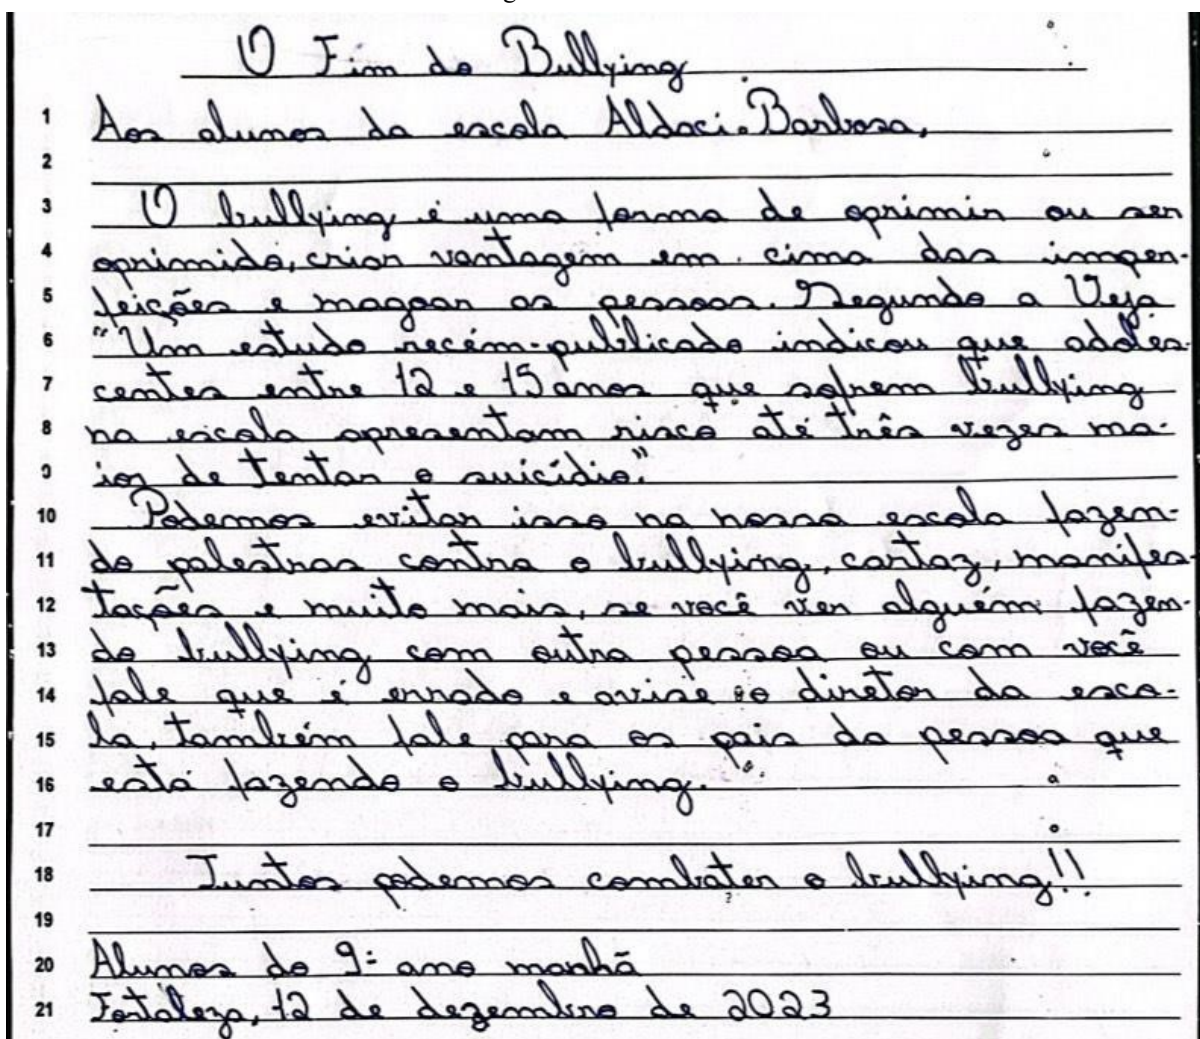 O Fim do Bullying
1 Aos alunos da escola Aldaci Barbosa,
2
3 O bullying é uma forma de oprimir ou ser
4 oprimido, criar vantagem em cima das imper-
5 feições e magoar as pessoas. Segundo a Veja
6 "Um estudo recém-publicado indicou que adoles-
7 centes entre 12 e 15 anos que sofrem bullying
8 na escola apresentam risco até três vezes ma-
9 ior de tentar o suicídio."
10 Podemos evitar isso na nossa escola fazen-
11 do palestras contra o bullying, cartaz, manifes-
12 tações e muito mais, se você ver alguém fazen-
13 do bullying com outra pessoa ou com você
14 fale que é errado e avise o diretor da esco-
15 la, também fale para os pais da pessoa que
16 está fazendo o bullying.
17
18 Juntos podemos combater o bullying!!
19
20 Alunos do 9º ano manhã
21 Fortaleza, 12 de dezembro de 2023